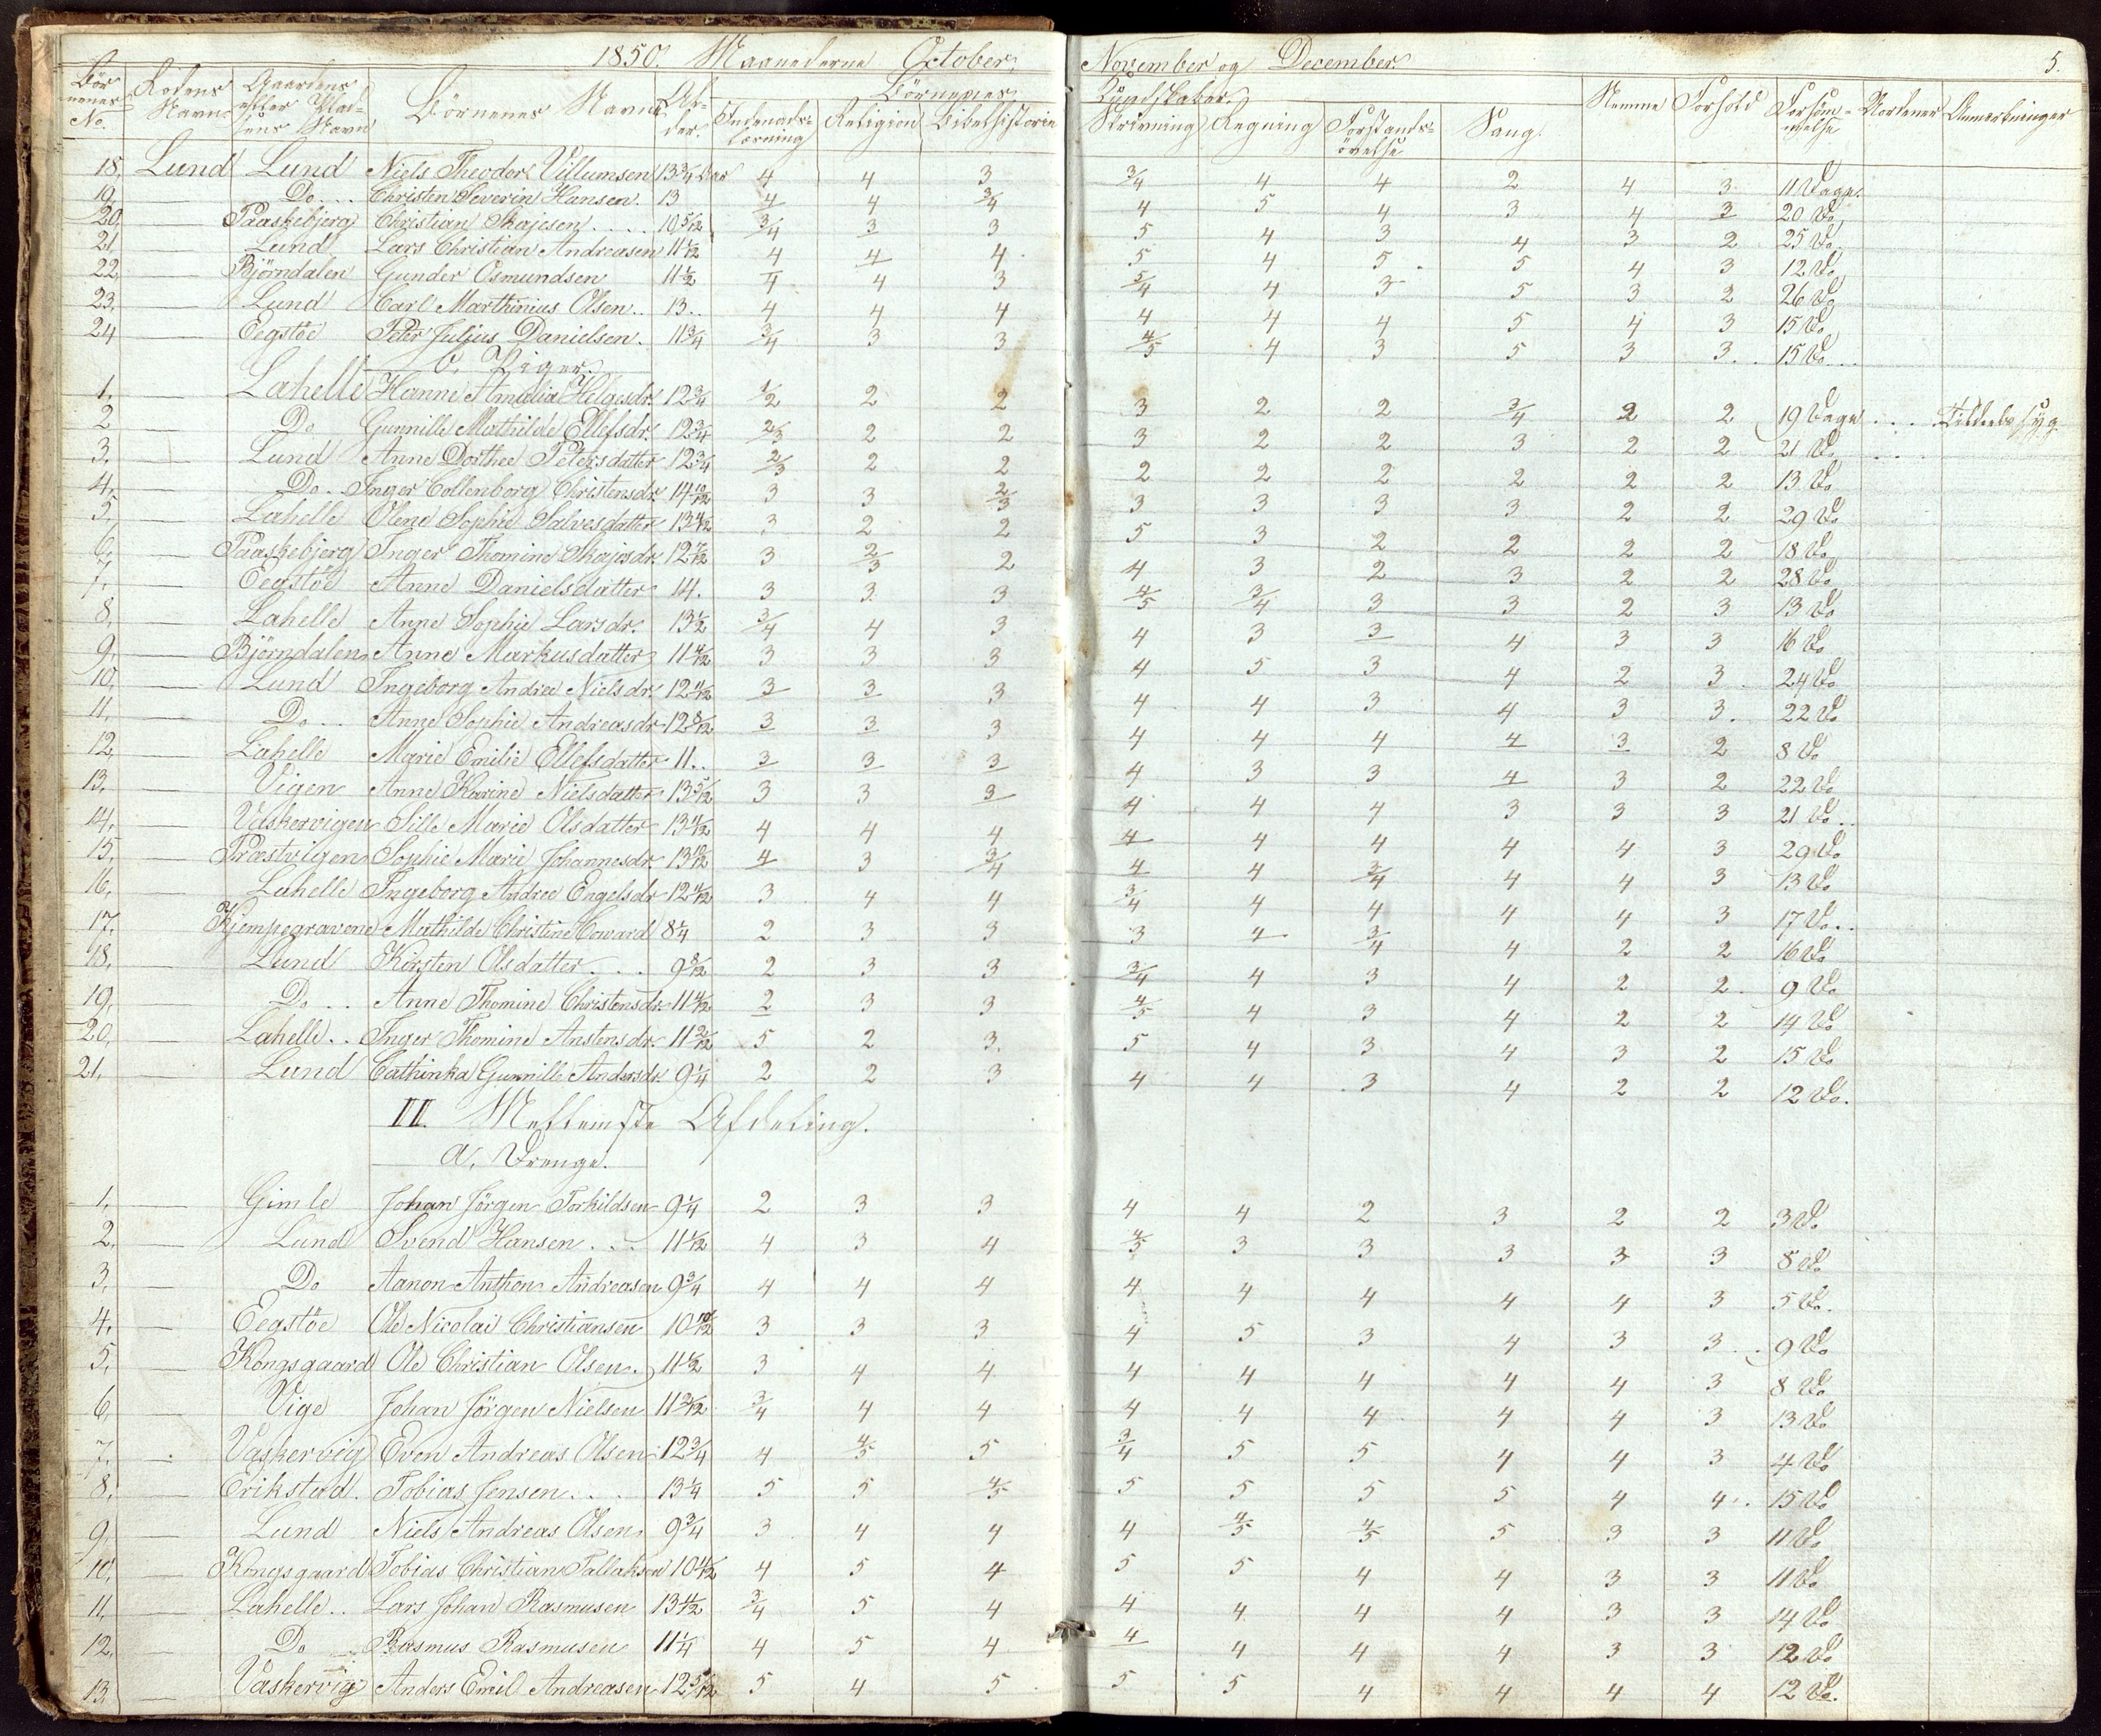 1850. Maanederne October, November og December. 5.
Börnenes No. Rodens Navn Gaardens eller Pladsens Navn Börnenes Navne Alder. Börnenes Kundskaber. Indenadslæsning Religion Bibelhistorie Skrivning Regning Forstandsövelse Sang. Nemme Forhold Forsömmelse Anmærkninger
18. Lund Lund Niels Theodor Villumsen 13 3/4 Aar 4 4 3 3/4 4 4 2 4 3 11 Dage.
19. Do... Christen Severin Hansen. 13 4 4 3/4 4 5 4 3 4 3 20 Do
20. Paaskebjerg Christian Skajesen.... 10 5/12 3/4 3 3 5 4 3 4 3 2 25 Do
21 Lund Lars Christian Andreasen 11 1/12 4 4 4. 5 4 5. 5 4 3 12 Do
22. Björndalen Gunder Osmundsen 11 1/2 4 4 3 5/4 4 3 5 3 2 26 Do
23. Lund Carl Marthinius Olsen.. 13.. 4 4 4 4 4 4 5 4 3 15 Do
24 Eegstöe Peter Julius Danielsen. 11 3/4 3/4 3 3 4/5 4 3 5 3 3. 15 Do
b, Piger.
1. Lahelle Hanne Amalia Helgesdr. 12 3/4 1/2 2 2 3 2 2 3/4 2 2 19 Dage.... Tildeels syg.
2 Do Gunnille Mathilde Ellefsdr. 12 3/4 2/3 2 2 3 2 2 3 2 2 21 Do
3. Lund Anne Dorthee Petersdatter 12 3/4 2/3 2 2 2 2 2 2 2 2 13 Do
4. Do. Inger Collenborg Christensdr 14 10/12 3 3 2/3 3 3 3 3 2 2 29 Do
5. Lahelle Olene Sophie Salvesdatter 13 4/12 3 2 2 5 3 2 2 2 2 18 Do
6. Paaskebjerg Inger Thomine Skajesdr. 12 7/12 3 2/3 2 4 3 2 3 2 2 28 Do
7. Eegstöe Anne Danielsdatter 14. 3 3 3 4/5 3/4 3 3 2 3 13 Do
8. Lahelle Anne Sophie Larsdr. 13 1/2 3/4 4 3 4 3 3 4 3 3 16 Do
9. Björndalen Anne Markusdatter 11 4/12 3 3 3 4 5 3 4 2 3. 24 Do
10. Lund Ingeborg Andrea Nielsdr. 12 4/12 3 3 3 4 4 3 4 3 3. 22 Do
11. Do.. Anne Sophie Andreasdr 12 8/12 3 3 3 4 4 4 4 3 2 8 Do
12. Lahelle Marie Emilie Ellefsdatter 11.. 3 3 3 4 3 3 4 3 2 22 Do
13. Vigen Anne Karine Nielsdatter 13 5/12 3 3 3 4 4 4 3 3 3 21 Do..
14. Vaskervigen Sille Marie Olsdatter 13 4/12 4 4 4 4 4 4 4 4 3 29 Do
15. Præstvigen Sophie Marie Johannesdr. 13 10/12 4 3 3/4 4 4 3/4 4 4 3 13 Do
16. Lahelle Ingeborg Andrea Engelsdr 12 4/12 3 4 4 3/4 4 4 4 4 3 17 Do..
17. Kjempegravene Mathilde Christine Coward 8 1/4 2 3 3 3 4 3/4 4 2 2 16 Do
18. Lund Kirsten Olsdatter... 9 8/12 2 3 3 3/4 4 3 4 2 2. 9 Do
19. Do.. Anne Thomine Christensdr. 11 4/12 2 3 3 4/5 4 3 4 2 2 14 Do
20. Lahelle.. Inger Thomine Anstensdr. 11 2/12 5 2 3. 5 4 3 4 3 2 15 Do
21. Lund Cathinka Gunnille Andersdr. 9 1/4 2 2 3 4 4 3 4 2 2 12 Do.
II. Mellemste Afdeling.
a, Drenge.
1. Gimle Johan Jörgen Torkildsen 9 1/4 2 3 3 4 4 2 3 2 2 3 Do
2. Lund Svend Hansen... 11 1/12 4 3 4 4/5 3 3 3 3 3 8 Do
3. Do Aanon Anthon Andreasen 9 3/4 4 4 4 4 4 4 4 4 3 5 Do.
4. Eegstöe Ole Nicolai Christiansen 10 10/12 3 3 3 4 5 3 4 3 3.. 9 Do
5. Kongsgaard Ole Christian Olsen. 11 1/2 3 4 4 4 4 4 4 4 3 8 Do
6. Vige Johan Jörgen Nielsen 11 3/12 3/4 4 4 4 4 4 4 4 3 13 Do
7. Vaskervig Even Andreas Olsen 12 3/4 4 4/5 5 3/4 5 5 4 4 3 4 Do
8. Erikstad. Tobias Jensen... 13 1/4 5 5 4/5 5 5 5 5 4 4.. 15 Do
9. Lund Niels Andreas Olsen 9 3/4 3 4 4 4 4/5 4/5 5 3 3 11 Do
10. Kongsgaard Tobias Christian Tallaksen 10 4/12 4 5 4 5 5 4 4 3 3 11 Do
11. Lahelle.. Lars Johan Rasmusen 13 4/12 3/4 5 4 4 4 4 4 3 3 14 Do
12. Do Rasmus Rasmusen 11 1/4 4 5 4 4 4 4 4 3 3 12 Do
13 Vaskervig Anders Emil Andreasen 12 5/12 5 4 5 5 5 4 4 4 4 12 Do.